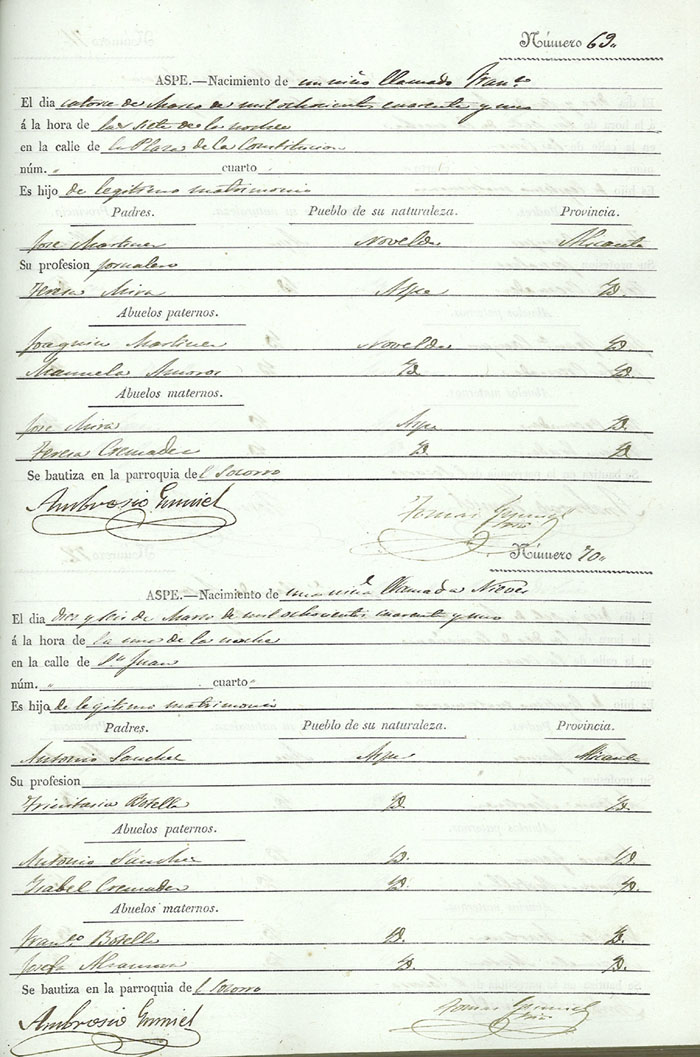 Número 69.
ASPE.—Nacimiento de un niño llamado Fran.co
El dia catorce de Marzo de mil ochocientos cuarenta y uno
á la hora de las siete de la noche
en la calle de la Plaza de la Constitucion
núm. " cuarto
Es hijo de legitimo matrimonio
Padres. Pueblo de su naturaleza. Provincia.
Jose Martinez Novelda Alicante
Su profesion Jornalero
Teresa Mira Aspe Yd.
Abuelos paternos.
Joaquin Martinez Novelda Yd.
Manuela Amoros Yd. Yd.
Abuelos maternos.
Jose Mira Aspe Yd.
Teresa Cremades Yd. Yd.
Se bautiza en la parroquia del Socorro
Ambrosio Gumiel Tomas Gumiel
Número 70.
ASPE.—Nacimiento de una niña llamada Nieves
El dia diez y seis de Marzo de mil ochocientos cuarenta y uno
á la hora de la una de la noche
en la calle de Sn Juan
núm. " cuarto "
Es hijo de legitimo matrimonio
Padres. Pueblo de su naturaleza. Provincia.
Antonio Sanchez Aspe Alicante
Su profesion
Trinitaria Botella Yd. Yd.
Abuelos paternos.
Antonio Sanchez Yd. Yd.
Ysabel Cremades Yd. Yd.
Abuelos maternos.
Fran.co Botella Yd. Yd.
Josefa Yd. Yd.
Se bautiza en la parroquia del Socorro
Ambrosio Gumiel Tomas Gumiel